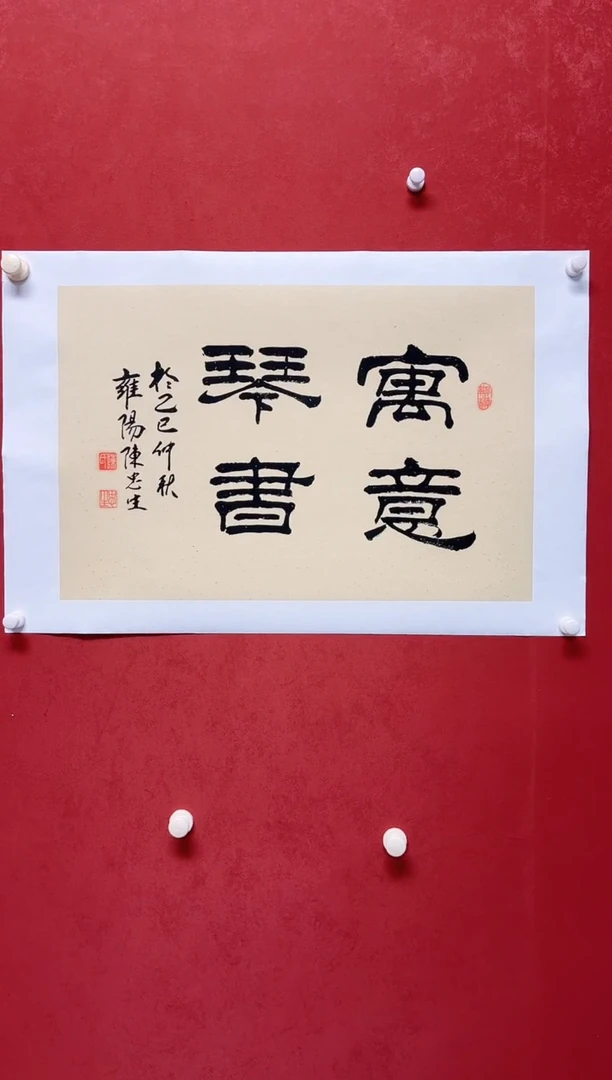 寓意
琴書
於乙巳仲秋
雍陽陳忠生